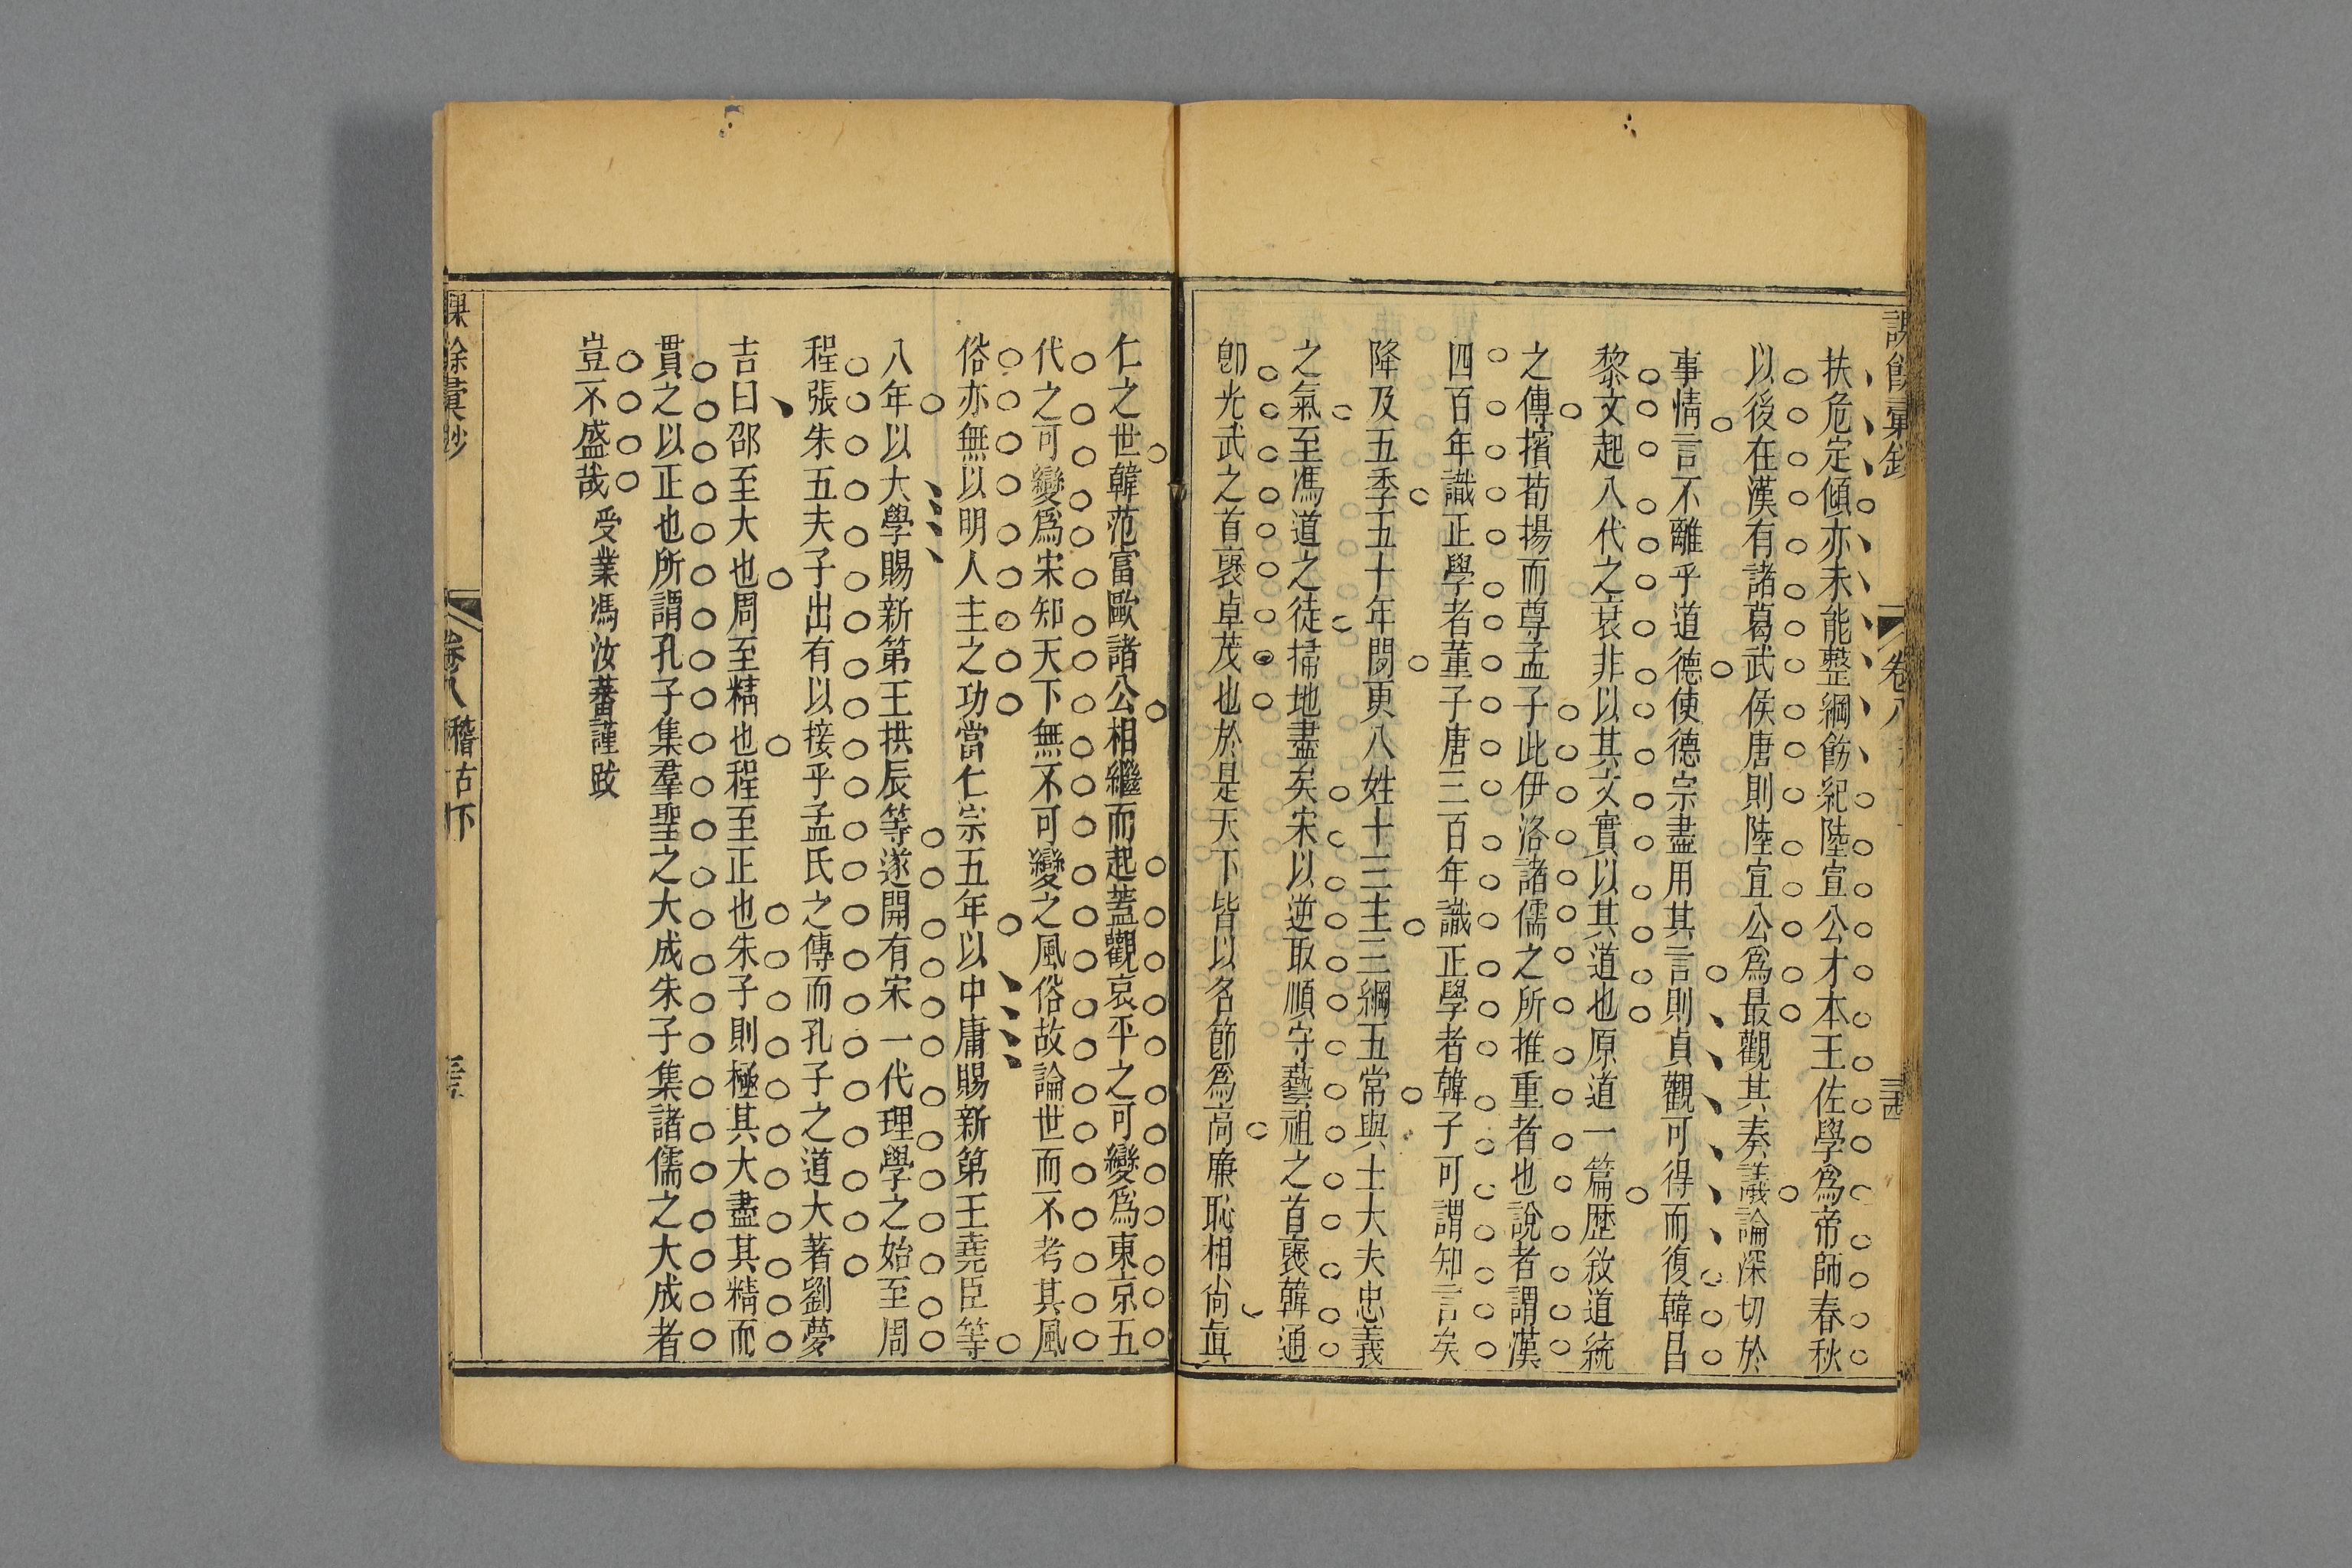 課餘彙鈔 卷八 三四
扶危定傾亦未能整綱飭紀陸宣公才本王佐學爲帝師春秋
以後在漢有諸葛武侯唐則陸宣公爲最觀其奏議論深切於
事情言不離乎道德使德宗盡用其言則貞觀可得而復韓昌
黎文起八代之衰非以其文實以其道也原道一篇歷敘道統
之傳擯荀揚而尊孟子此伊洛諸儒之所推重者也說者謂漢
四百年識正學者董子唐三百年識正學者韓子可謂知言矣
降及五季五十年閒更八姓十三主三綱五常與士大夫忠義
之氣至馮道之徒掃地盡矣宋以逆取順守藝祖之首褒韓通
卽光武之首褒卓茂也於是天下皆以名節爲高廉恥相尙眞
仁之世韓范富歐諸公相繼而起蓋觀哀平之可變爲東京五
代之可變爲宋知天下無不可變之風俗故論世而不考其風
俗亦無以明人主之功當仁宗五年以中庸賜新第王堯臣等
八年以大學賜新第王拱辰等遂開有宋一代理學之始至周
程張朱五夫子出有以接乎孟氏之傳而孔子之道大著劉夢
吉曰邵至大也周至精也程至正也朱子則極其大盡其精而
貫之以正也所謂孔子集羣聖之大成朱子集諸儒之大成者
豈不盛哉 受業馮汝蕃謹跋
課餘彙鈔 卷八 稽古下